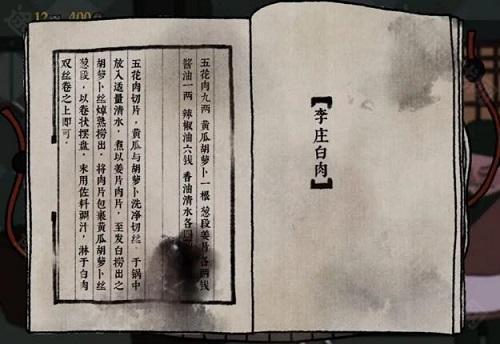 12 400
【李庄白肉】
五花肉九两 黄瓜胡萝卜一根 葱段姜片各两钱
酱油一两 辣椒油六钱 香油清水各四
五花肉切片，黄瓜与胡萝卜洗净切丝。于锅中
放入适量清水，煮以姜片肉片，至发白捞出之
胡萝卜丝焯熟捞出，将肉片包裹黄瓜胡萝卜丝
葱段，以卷状摆盘，末用佐料调汁，淋于白肉
双丝卷之上即可。